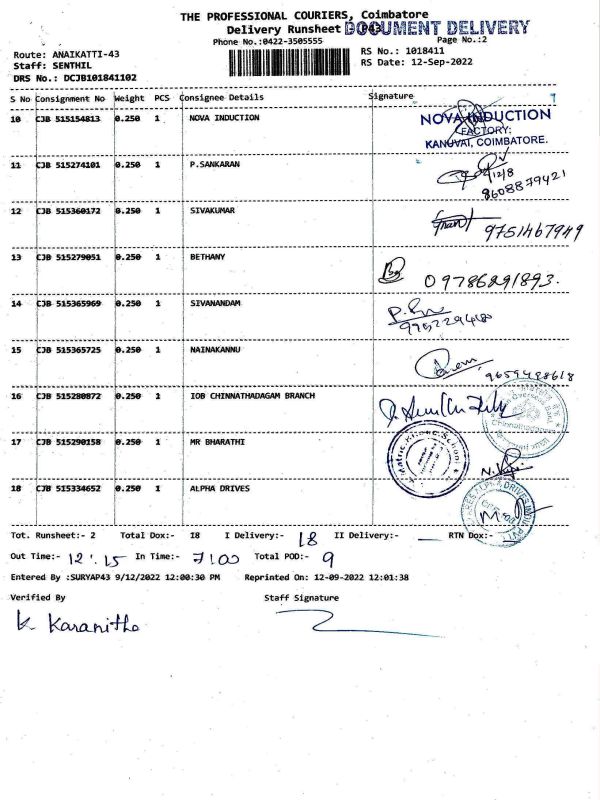 THE PROFESSIONAL COURIERS, Coimbatore
Delivery Runsheet DOCUMENT DELIVERY
Phone No.:0422-3505555 Page No.:2
Route: ANAIKATTI-43 RS No.: 1018411
Staff: SENTHIL RS Date: 12-Sep-2022
DRS No.: DCJB101841102
S No Consignment No Weight PCS Consignee Details Signature
10 CJB 515154813 0.250 1 NOVA INDUCTION NOVA INDUCTION
FACTORY:
KANUVAI, COIMBATORE.
11 CJB 515274101 0.250 1 P.SANKARAN 12/8
8608879421
12 CJB 515360172 0.250 1 SIVAKUMAR 9751467949
13 CJB 515279051 0.250 1 BETHANY 09786291893.
14 CJB 515365969 0.250 1 SIVANANDAM
15 CJB 515365725 0.250 1 NAINAKANNU
16 CJB 515280872 0.250 1 IOB CHINNATHADAGAM BRANCH
17 CJB 515290158 0.250 1 MR BHARATHI
18 CJB 515334652 0.250 1 ALPHA DRIVES
Tot. Runsheet:- 2 Total Dox:- 18 I Delivery:- 18 II Delivery:- RTN Dox:-
Out Time:- 12:15 In Time:- 7:00 Total POD:- 9
Entered By :SURYAP43 9/12/2022 12:00:30 PM Reprinted On: 12-09-2022 12:01:38
Verified By Staff Signature
K. Karanitha